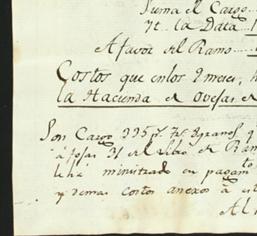 Suma el Cargo
Yt. la Data
A favor del Ramo
Costos que enlos 9 meses, h
la Hacienda de Ovejas de
Son Cargo 335 p.s 7 r.s 2 granos q
á fojas 31 del Libro de Ram
le ha ministrado en pagam.to
y demas costos anexos á est
Al